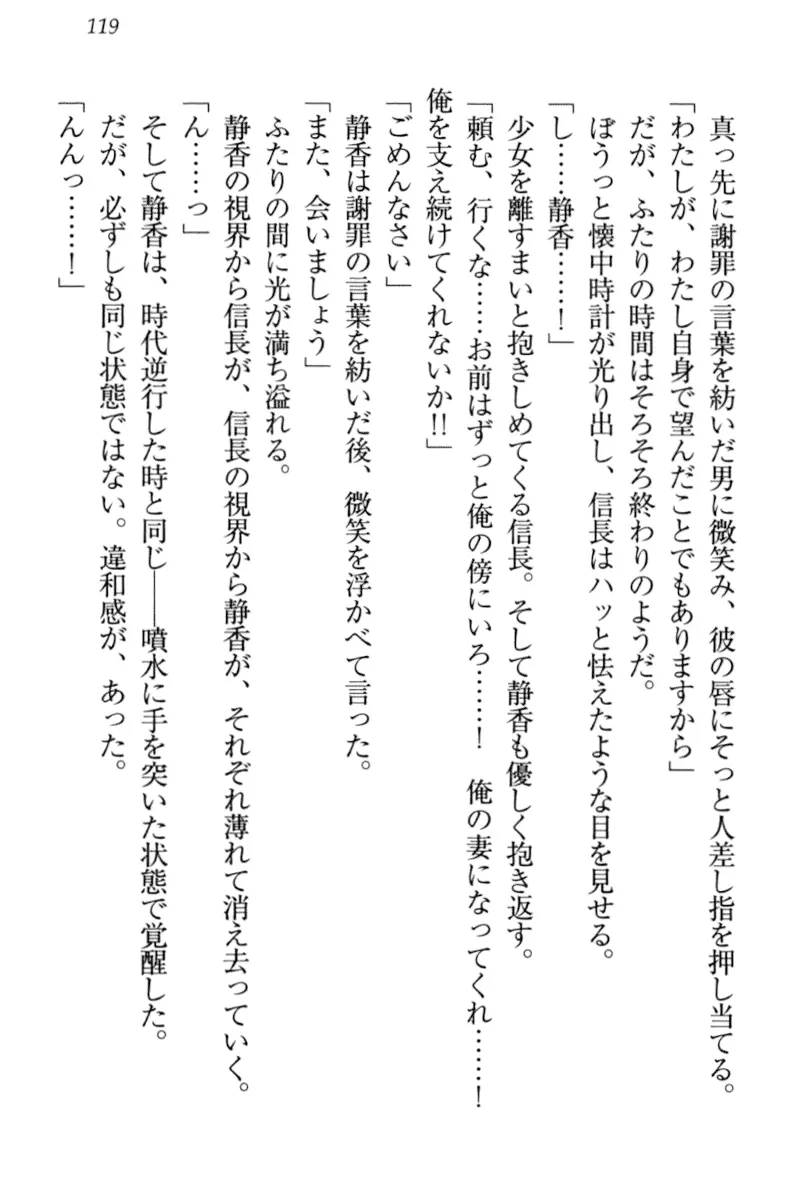 119
真っ先に謝罪の言葉を紡いだ男に微笑み、彼の唇にそっと人差し指を押し当てる。
「わたしが、わたし自身で望んだことでもありますから」
だが、ふたりの時間はそろそろ終わりのようだ。
ぼうっと懐中時計が光り出し、信長はハッと怯えたような目を見せる。
「し……静香……！」
少女を離すまいと抱きしめてくる信長。そして静香も優しく抱き返す。
「頼む、行くな……お前はずっと俺の傍にいろ……！　俺の妻になってくれ……！
俺を支え続けてくれないか!!」
「ごめんなさい」
静香は謝罪の言葉を紡いだ後、微笑を浮かべて言った。
「また、会いましょう」
ふたりの間に光が満ち溢れる。
静香の視界から信長が、信長の視界から静香が、それぞれ薄れて消え去っていく。
「ん……っ」
そして静香は、時代逆行した時と同じ――噴水に手を突いた状態で覚醒した。
だが、必ずしも同じ状態ではない。違和感が、あった。
「んんっ……！」